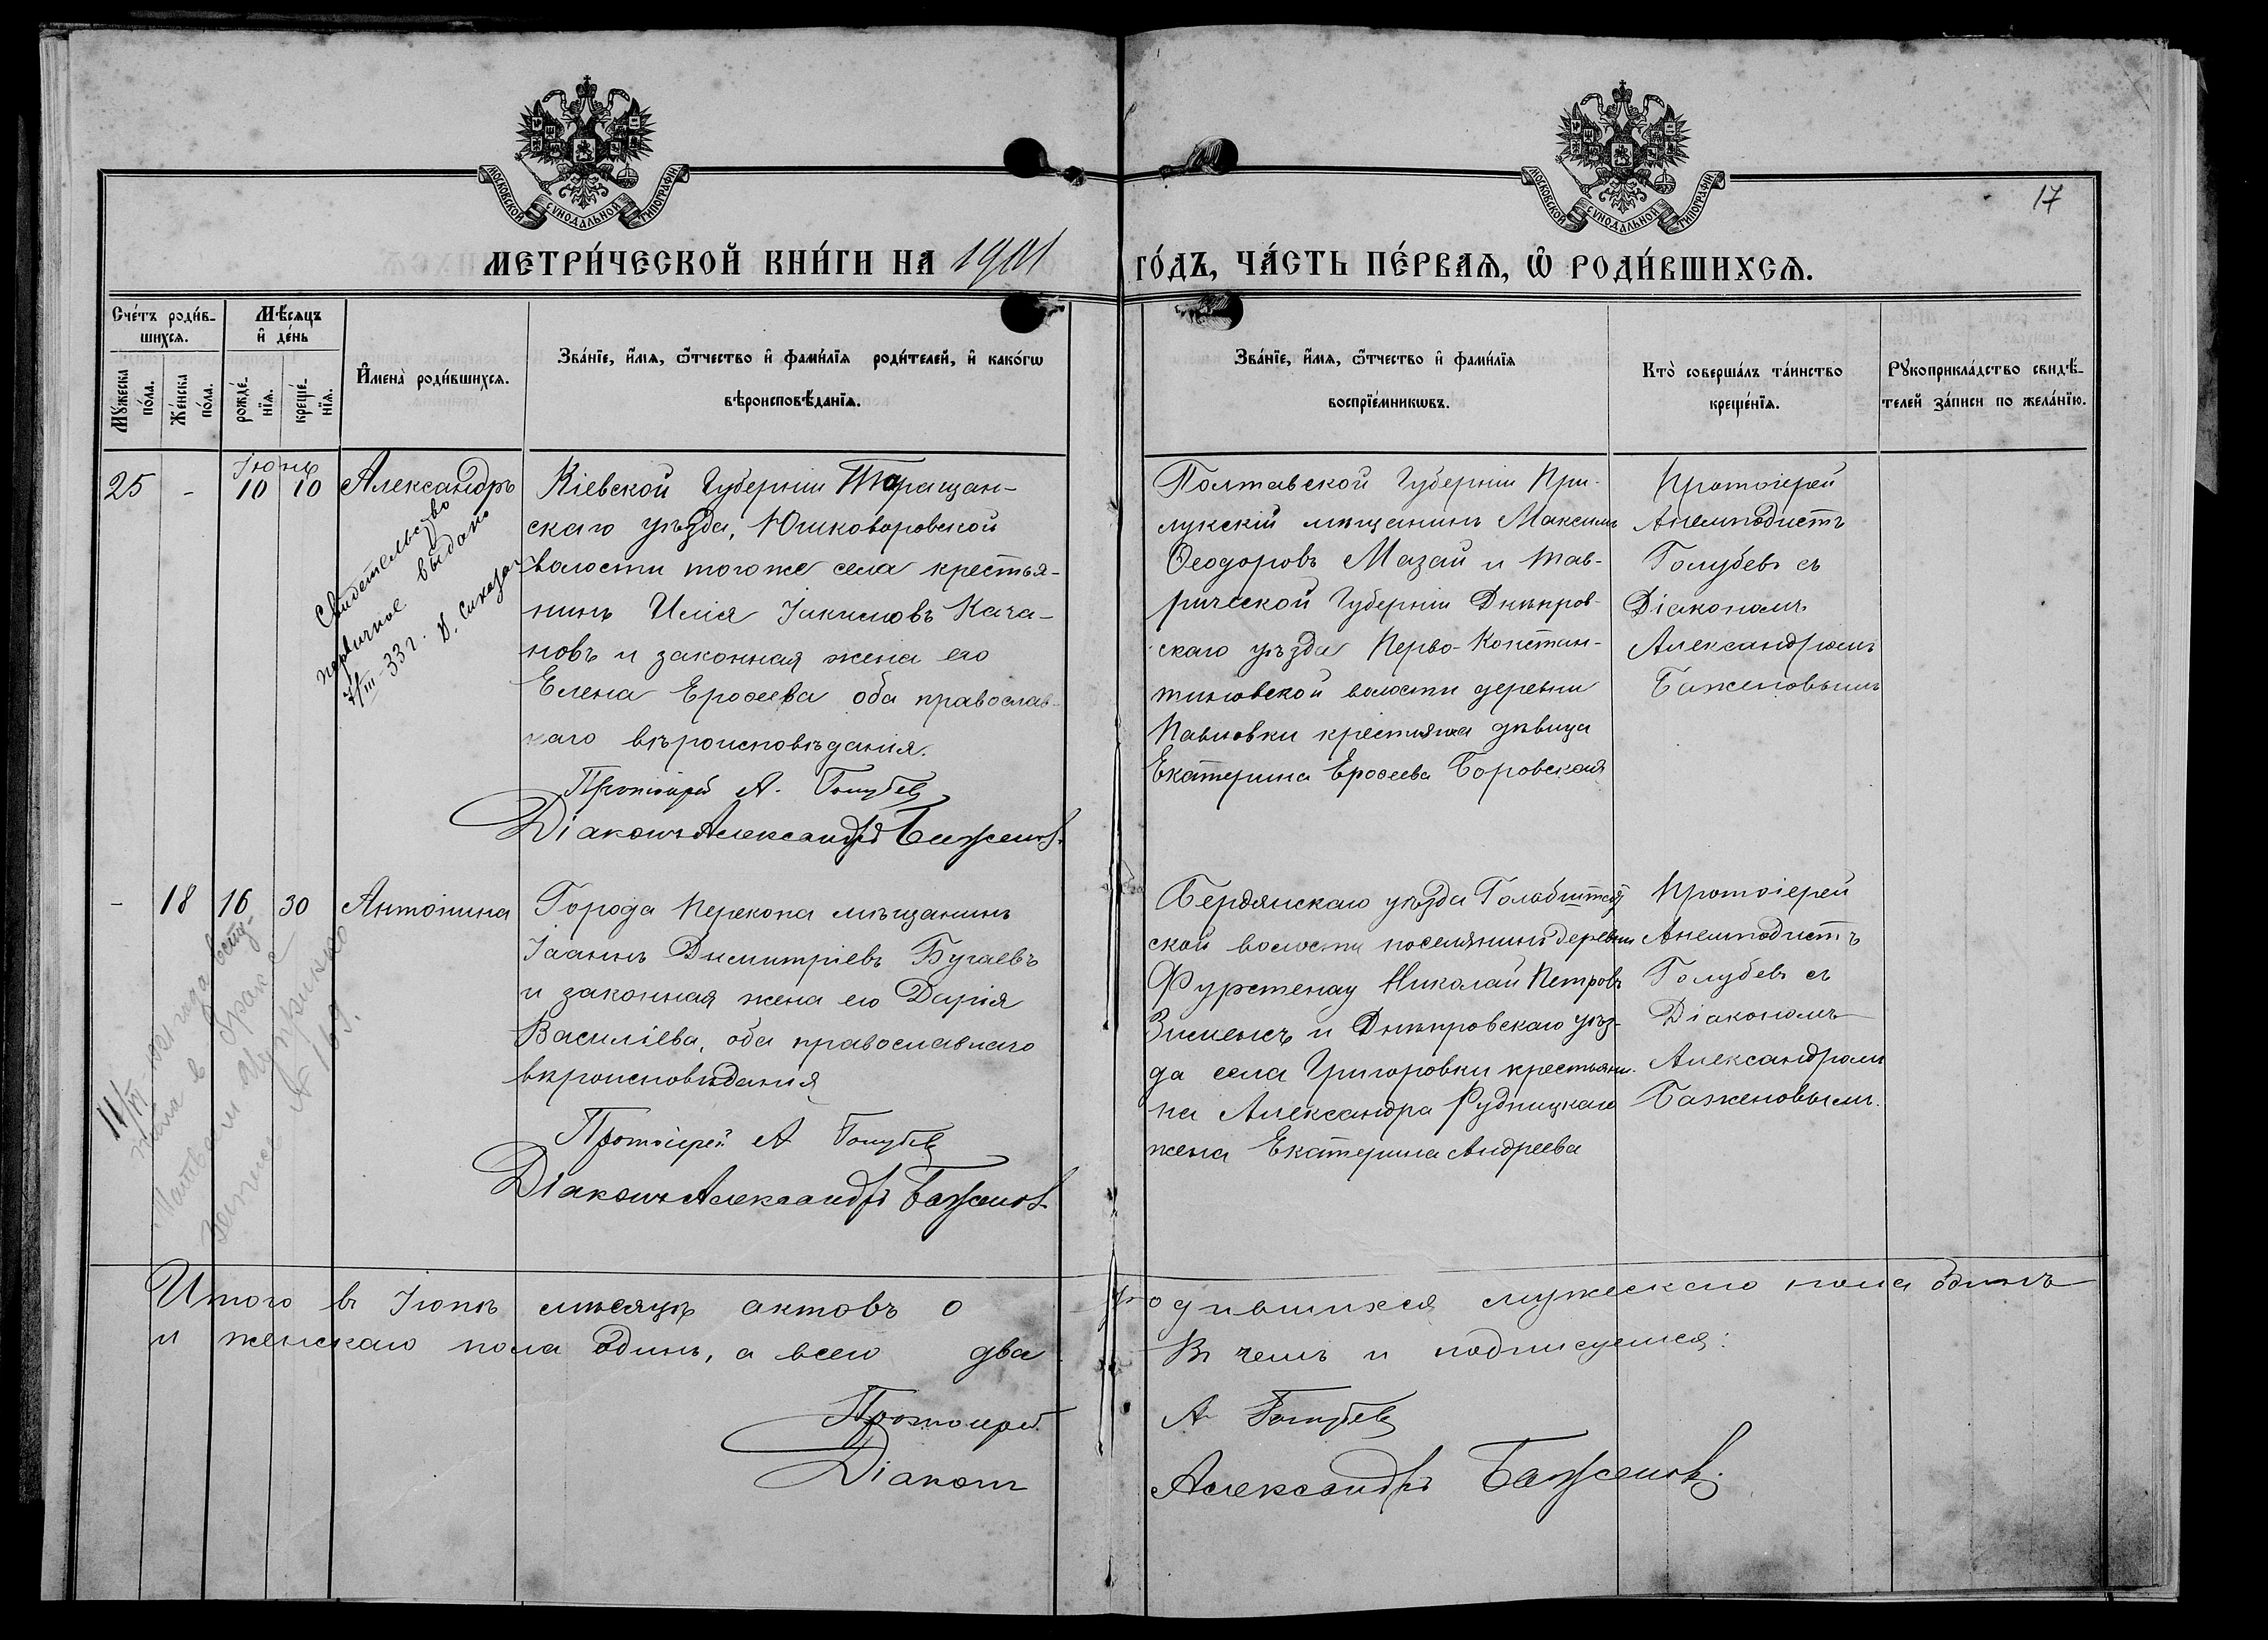 МОСКОВСКОЙ СУНОДАЛЬНОЙ ТИПОГРАФІИ
МОСКОВСКОЙ СУНОДАЛЬНОЙ ТИПОГРАФІИ
17
МЕТРИ́ЧЕСКОЙ КНИ́ГИ НА 1901 ГО́ДЪ, ЧА́СТЬ ПЕ́РВАЯ, Ѡ РОДИ́ВШИХСЯ.
Сче́тъ роди́в-
шихся.
Мѣ́сяцъ
и҆ де́нь
Мꙋ́жеска
по́ла.
Же́нска
по́ла.
рожде́-
нїя.
креще́-
нїя.
И҆мена̀ роди́вшихся.
Зва́нїе, и҆́мя, ѻ҆́тчество и҆ фами́лїя роди́телей, и҆ како́гѡ
вѣроисповѣ́данїя.
Зва́нїе, и҆́мя, ѻ҆́тчество и҆ фами́лїя
воспрїе́мникѡвъ.
Кто̀ соверша́лъ та́инство
креще́нїя.
Рꙋкоприкла́дство свидѣ́-
телей за́писи по жела́нїю.
25
-
Іюнь
10
10
Александръ
Свидетельство
первичное выдано
7/III-33 г.
Кіевской Губерніи Таращан-
скаго уѣзда, Юшковоровской
волости того же села крестья-
нинъ Илія Іакимовъ Кача-
новъ и законная жена его
Елена Ерофеева оба православ-
наго вѣроисповѣданія.
Протоіерей А. Голубевъ
Діаконъ Александръ Баженовъ
Полтавской Губерніи При-
лукскій мѣщанинъ Максимъ
Ѳеодоровъ Мазай и Тав-
рической Губерніи Днѣпров-
скаго уѣзда Перво-Констан-
тиновской волости деревни
Павловки крестьянка дѣвица
Екатерина Ерофеева Боровская
Протоіерей
Анемподистъ
Голубевъ съ
Діакономъ
Александромъ
Баженовымъ
-
18
16
30
Антонина
11/VI 1921 года всту-
пила в браке
с
Записи № 169.
Города Перекопа мѣщанинъ
Іоаннъ Димитріевъ Бугаевъ
и законная жена его Дарія
Василіева, оба православнаго
вѣроисповѣданія
Протоіерей А Голубевъ
Діаконъ Александръ Баженовъ
Бердянскаго уѣзда
ской волости поселянинъ деревни
Фурстенау Николай Петровъ
Зименсъ и Днѣпровскаго уѣз-
да села Григоровки крестьяни-
на Александра Рудницкаго
жена Екатерина Андреева
Протоіерей
Анемподистъ
Голубевъ съ
Діакономъ
Александромъ
Баженовымъ.
Итого въ Іюнѣ мѣсяцѣ актовъ о родившихся мужескаго пола одинъ
и женскаго пола одинъ, а всего два Въ чемъ и подписуемся:
Протоіерей А Голубевъ
Діаконъ Александръ Баженовъ.